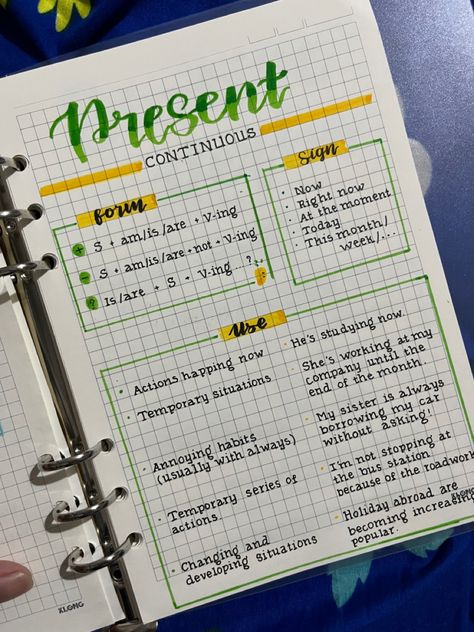 Present
CONTINUOUS
form
+ S + am/is/are + V-ing
- S + am/is/are + not + V-ing
? Is/are + S + V-ing...?
Sign
· Now
· Right now
· At the moment
· Today
· This month/
week/...
Use
· Actions happing now
· He's studying now.
· Temporary situations
She's working at my
company until the
end of the month.
· Annoying habits
(usually with always)
· My sister is always
borrowing my car
without asking!
· Temporary series of
actions.
· I'm not stopping at
the bus station
because of the roadwork
· Changing and
developing situations
· Holiday abroad are
becoming increasing
popular.
KLONG
KLONG